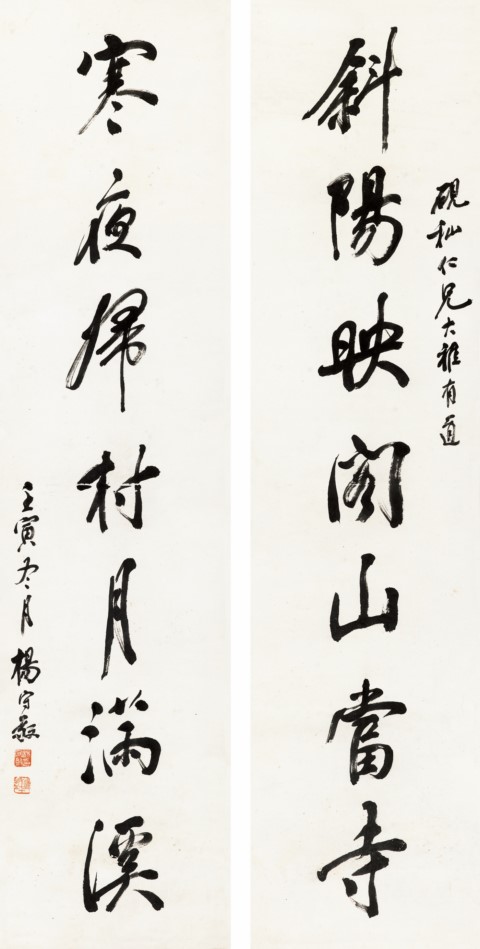 硯秈仁兄大雅有道
斜陽映閣山當寺
寒夜歸村月滿溪
壬寅冬月楊守敬